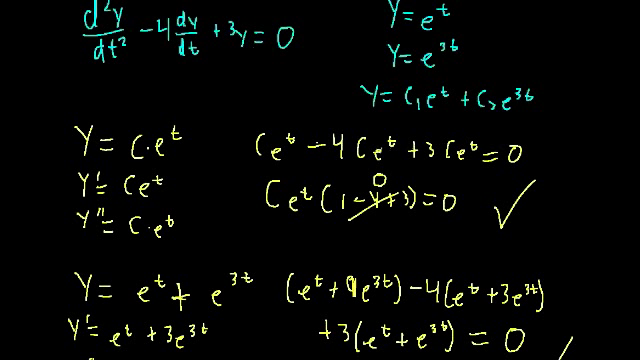 d²y/dt² - 4 dy/dt + 3y = 0
y = e^t
y = e^3t
y = c₁e^t + c₂e^3t
y = c·e^t
y' = ce^t
y'' = c·e^t
ce^t - 4ce^t + 3ce^t = 0
ce^t(1-4+3) = 0 ✓
0
y = e^t + e^3t
y' = e^t + 3e^3t
(e^t + 9e^3t) - 4(e^t + 3e^3t)
+3(e^t + e^3t) = 0